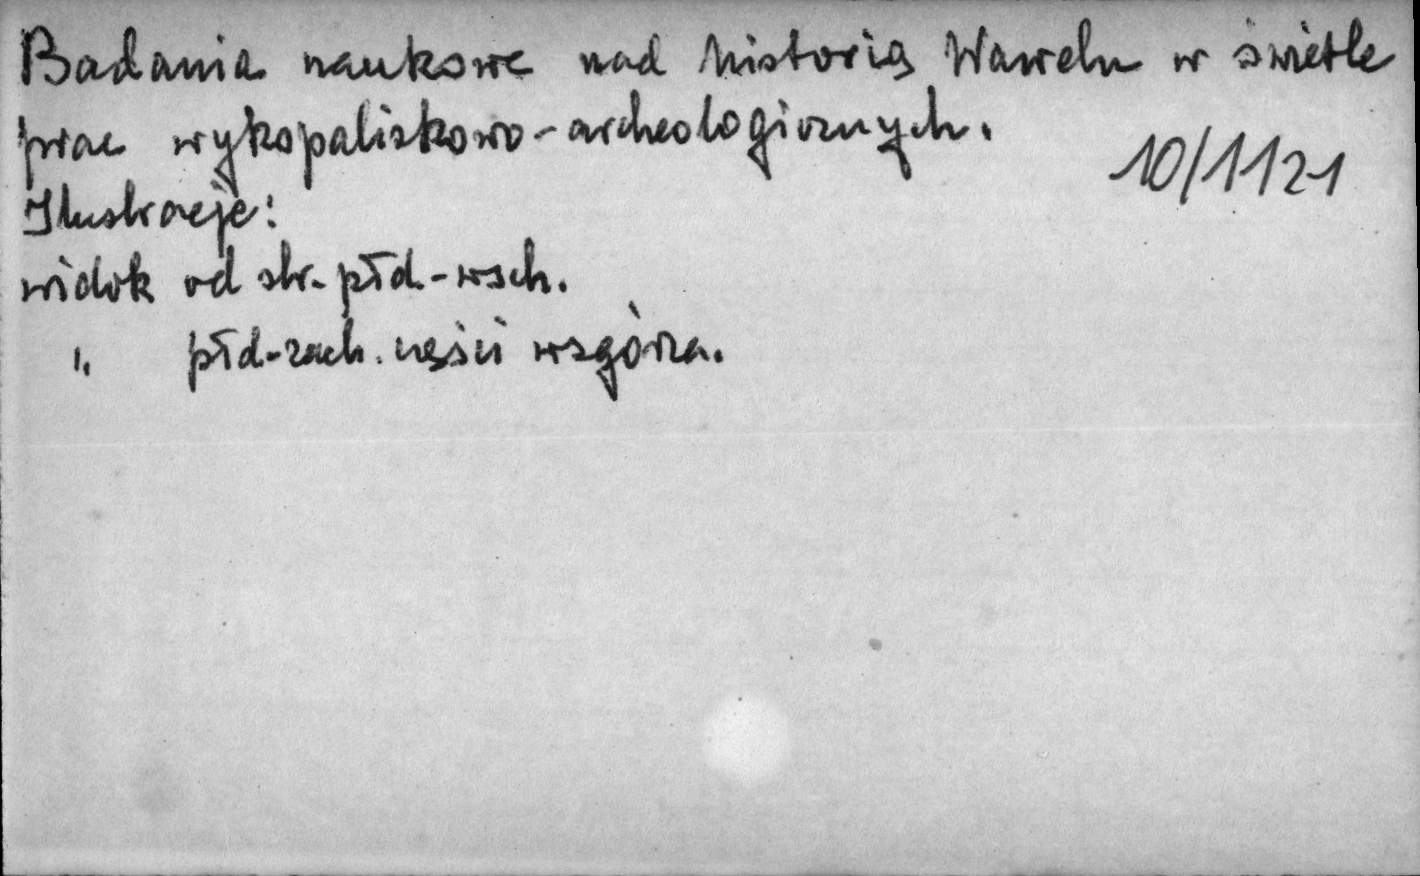 Badania naukowe nad historią Wawelu w świetle
prac wykopaliskowo-archeologicznych.
10/1121
Ilustracje:
widok od str. płd.-wsch.
„ płd.-zach. części wzgórza.